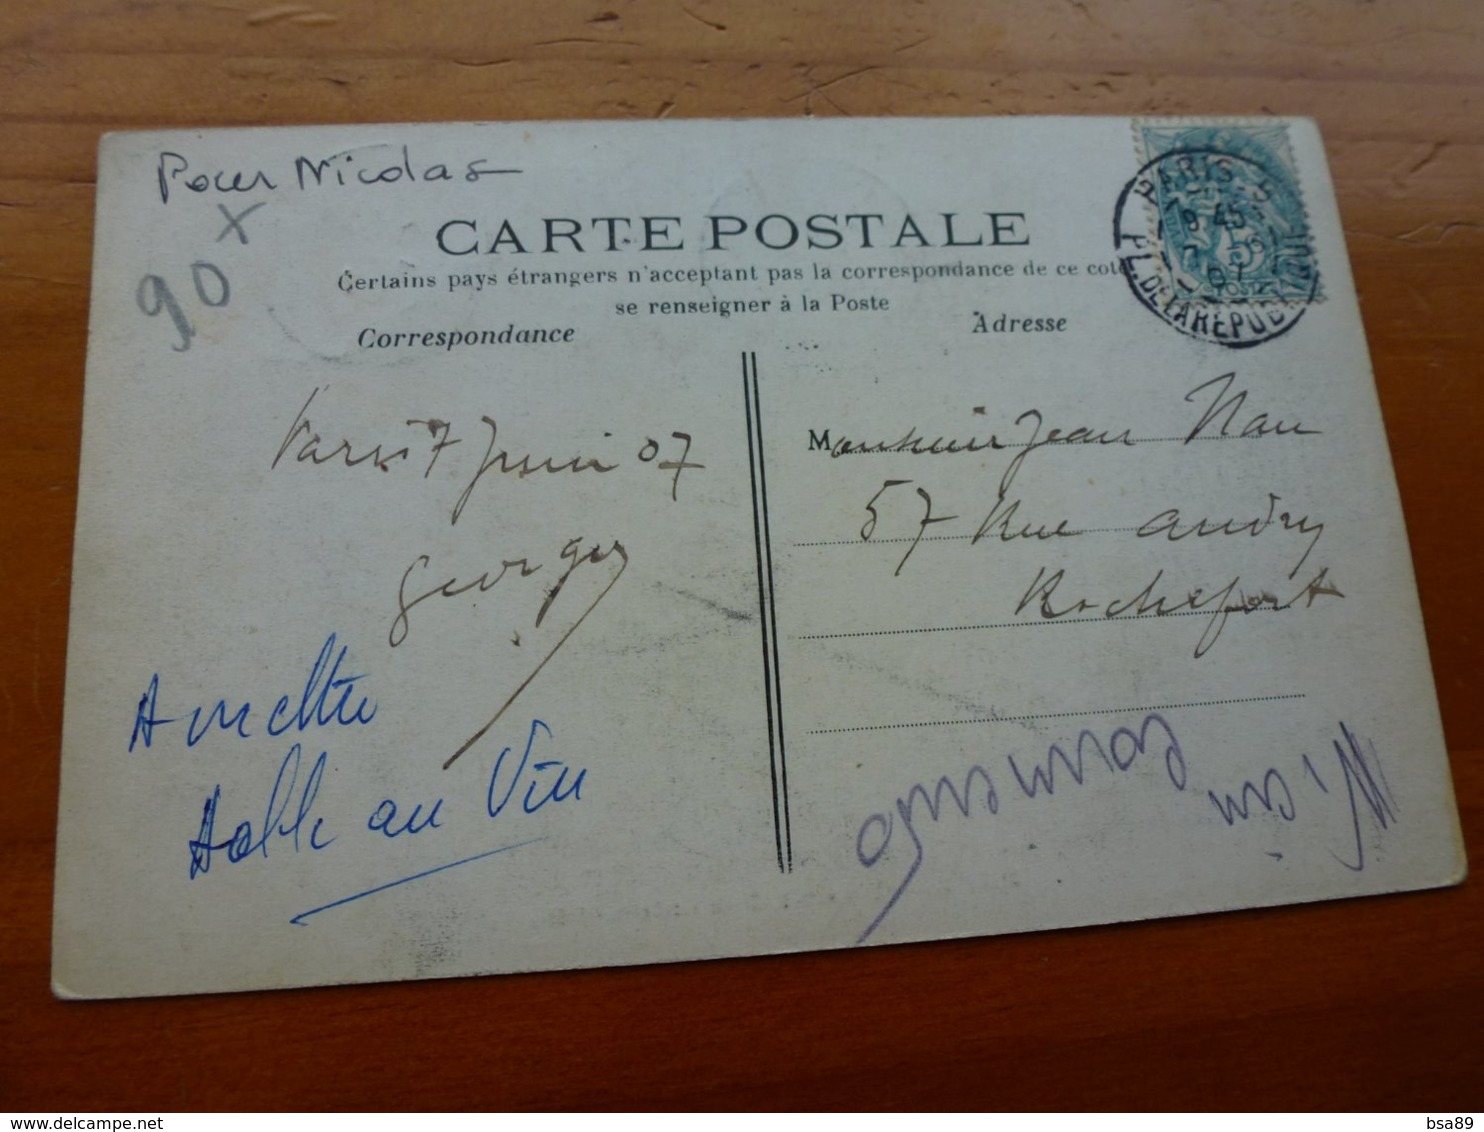 Pour Nicolas
90 x
CARTE POSTALE
Certains pays étrangers n'acceptant pas la correspondance de ce coté
se renseigner à la Poste
Correspondance
Adresse
PARIS
PL. DE LA REPUBLIQUE
Paris 7 Juin 07
Georges
Monsieur Jean Nau
57 Rue Audry
Rochefort
au Vin
bsa89